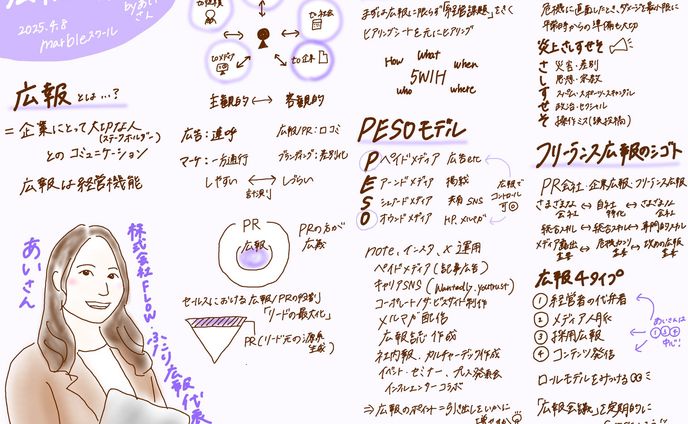 byあい
さん
2025.4.8
marbleスクール
広報とは…?
=企業にとって大切な人
(ステークホルダー)
とのコミュニケーション
広報は経営機能
あいさん
株式会社FLOW.
広報代表
to社会
toメディア
to企業
主観的 ↔ 客観的
広告:連呼
広報/PR:口コミ
マーケ:一方通行
ブランディング:差別化
しやすい ↔ しづらい
計測
PR
広報
PRの方が
広義
セールスにおける広報/PRの役割
「リードの最大化」
PR(リード元の源泉
生成)
まずは広報に限らず「経営課題」をきく
ヒアリングシートを元にヒアリング
How What when
5W1H
who where
PESOモデル
Pペイドメディア 広告etc
Eアーンドメディア 掲載
Sシェアードメディア 共有SNS
Oオウンドメディア HP.メルマガ
広報で
コントロール
可
note、インスタ、X 運用
ペイドメディア(記事広告)
キャリアSNS(Wantedly.youtrust)
コーポレート/サービスサイト制作
メルマガ配信
広報誌 作成
社内報、カルチャーデック作成
イベント・セミナー、プレス発表会
インフルエンサーコラボ
⇒ 広報のポイント=引き出しをいかに
増やすか
危機に直面したとき、ダメージを最小限に
平常時からの準備も大切
炎上さしすせそ
さ 災害・差別
し 思想・宗教
す スパム・スポーツ・スキャンダル
せ 政治・セクシャル
そ 操作ミス(誤投稿)
フリーランス広報のシゴト
PR会社・企業広報・フリーランス広報
さまざまな
会社 ↔ 自社
特化 ↔ さまざまな
会社
統合スキル ↔ 統合スキル ↔ 専門的スキル
メディア露出
主 ↔ 危機カンリ
主 ↔ 攻めの広報
主
広報4タイプ
①経営者の代弁者
②メディア人脈
③採用広報
④コンテンツ発信
あいさんは
①③④
中心!
ロールモデルをみつける
「広報会議」を定期的に